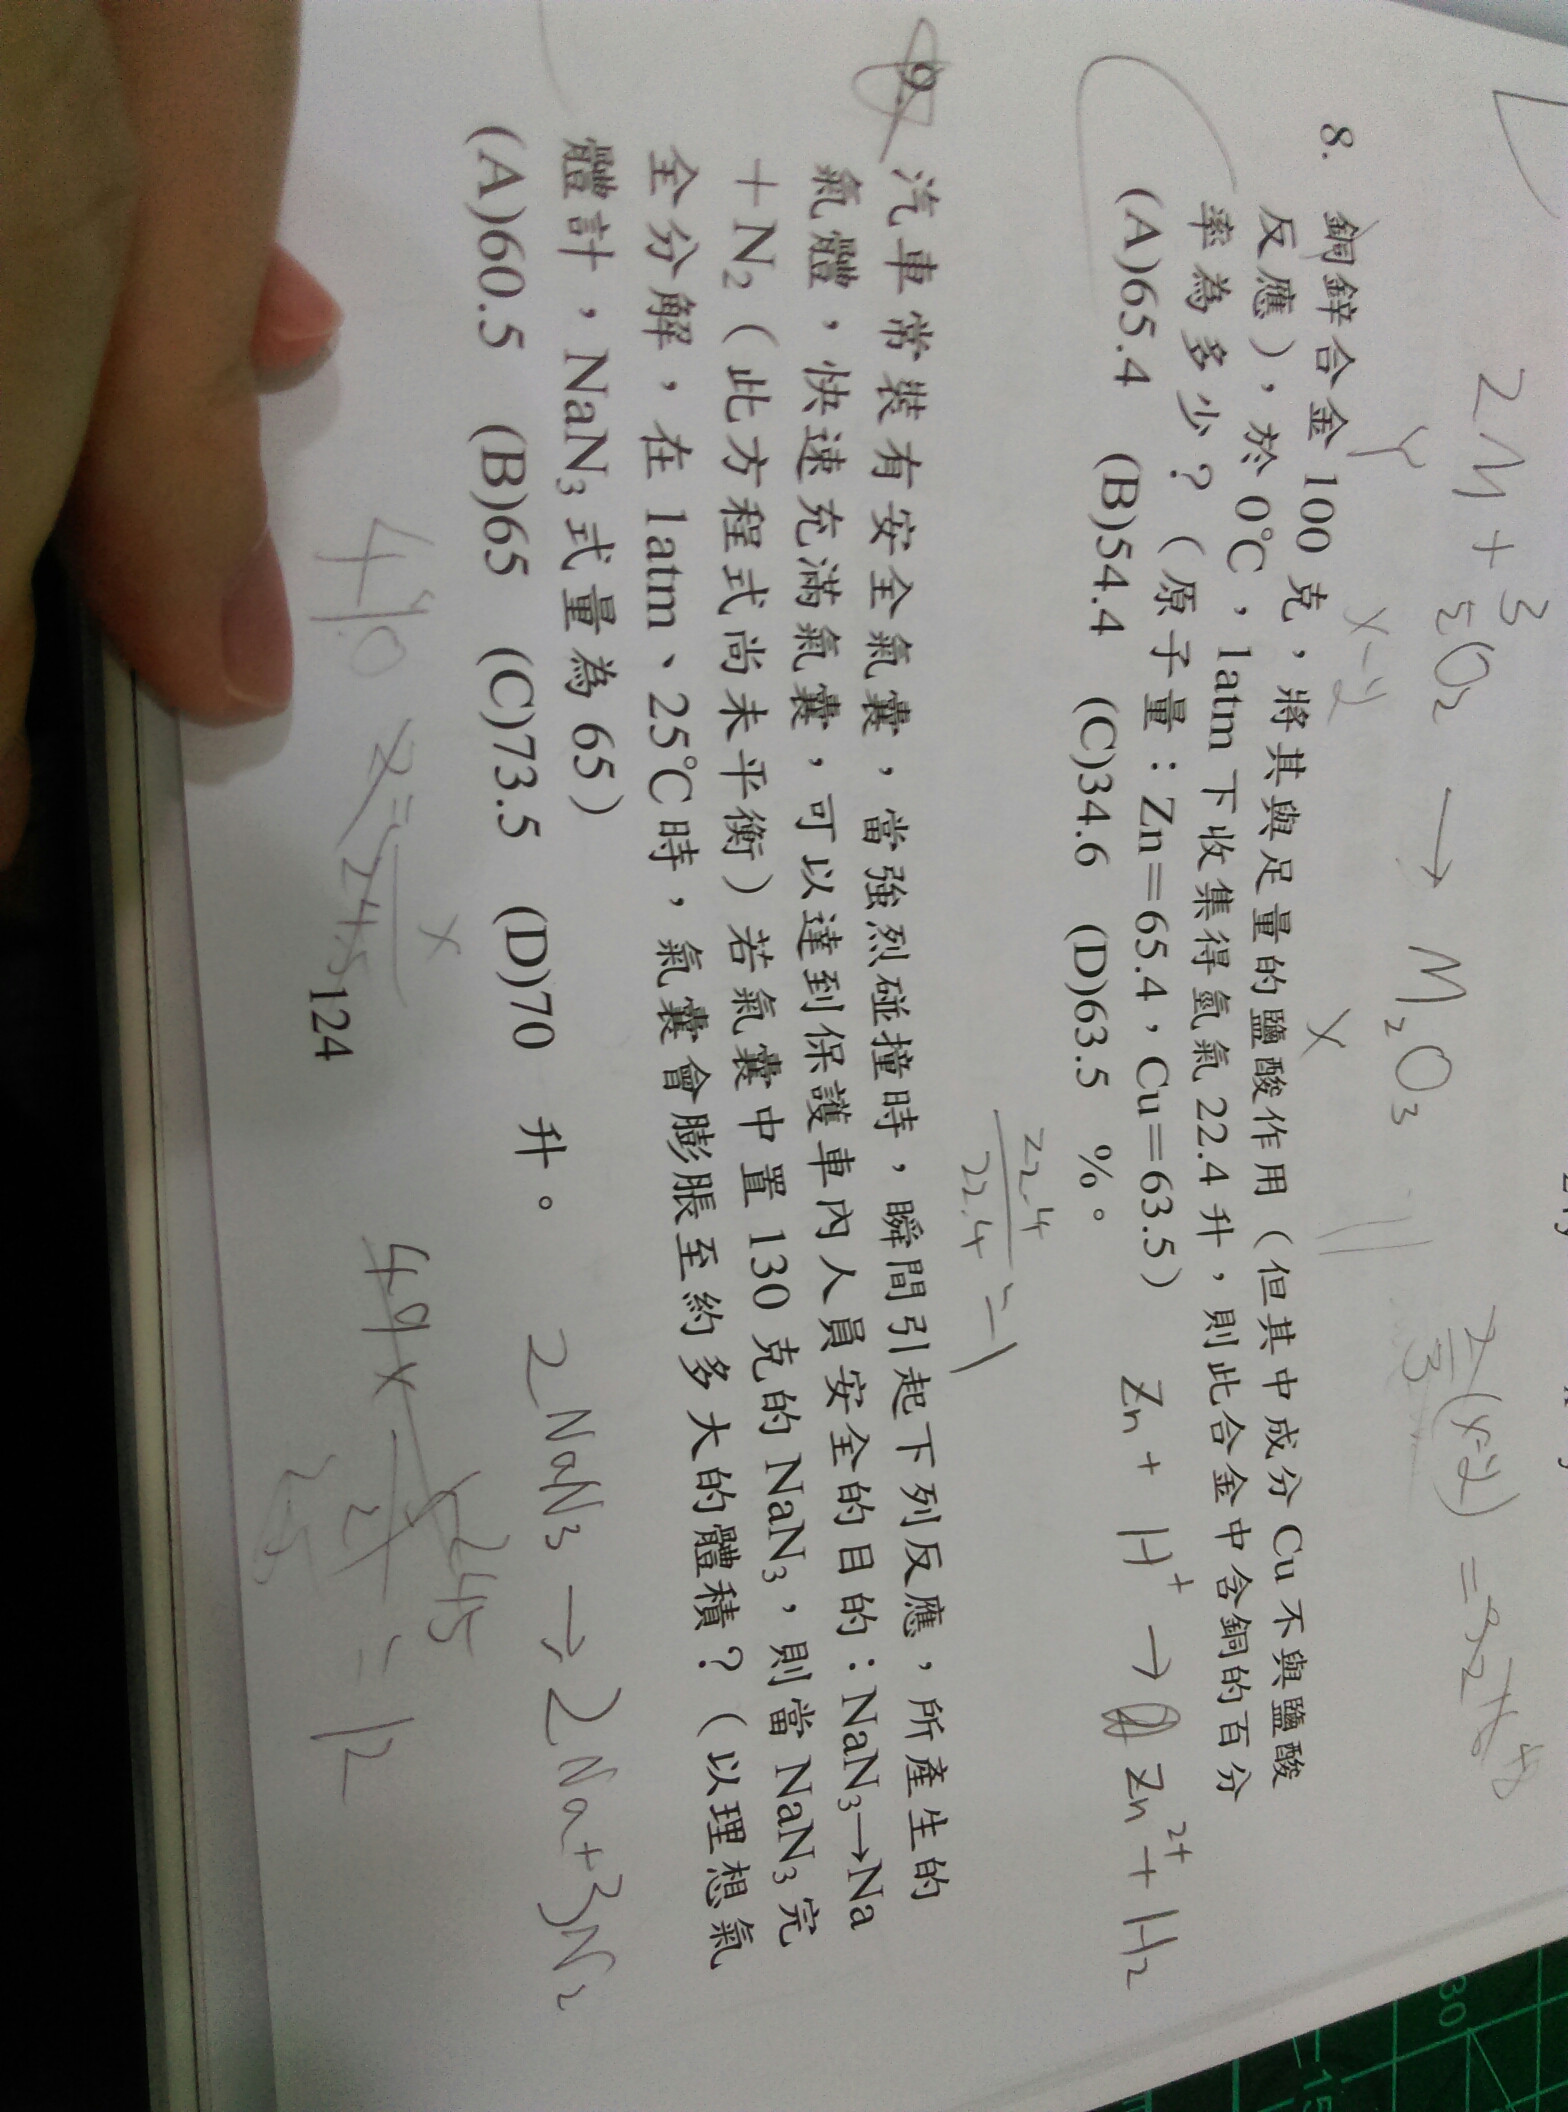 2M + 3/2 O₂ → M₂O₃
8. 銅鋅合金 100 克，將其與足量的鹽酸作用（但其中成分 Cu 不與鹽酸
反應），於 0℃，1atm 下收集得氫氣 22.4 升，則此合金中含銅的百分
率為多少？（原子量：Zn＝65.4，Cu＝63.5）
(A)65.4 (B)54.4 (C)34.6 (D)63.5 %。
Zn + H⁺ → Zn²⁺ + H₂
22.4/22.4 = 1
9. 汽車常裝有安全氣囊，當強烈碰撞時，瞬間引起下列反應，所產生的
氣體，快速充滿氣囊，可以達到保護車內人員安全的目的：NaN₃→Na
＋N₂（此方程式尚未平衡）若氣囊中置 130 克的 NaN₃，則當 NaN₃ 完
全分解，在 1atm、25℃時，氣囊會膨脹至約多大的體積？（以理想氣
體計，NaN₃ 式量為 65）
(A)60.5 (B)65 (C)73.5 (D)70 升。
2NaN₃ → 2Na + 3N₂
124